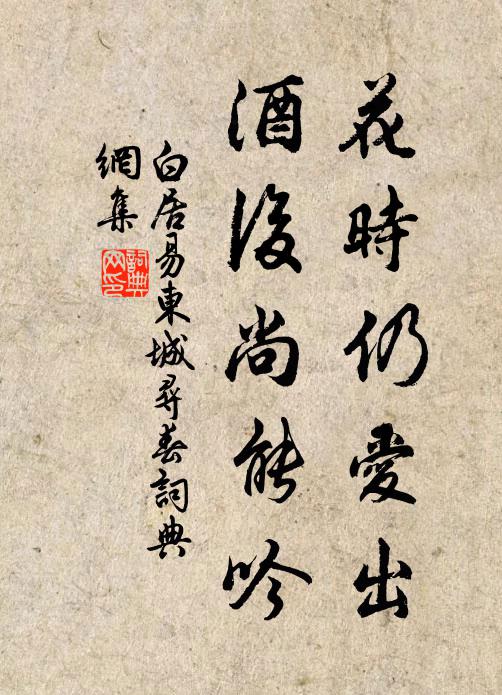 花時仍愛出
酒後尚能吟
白居易東城尋春詞典
網集
詞典
网印